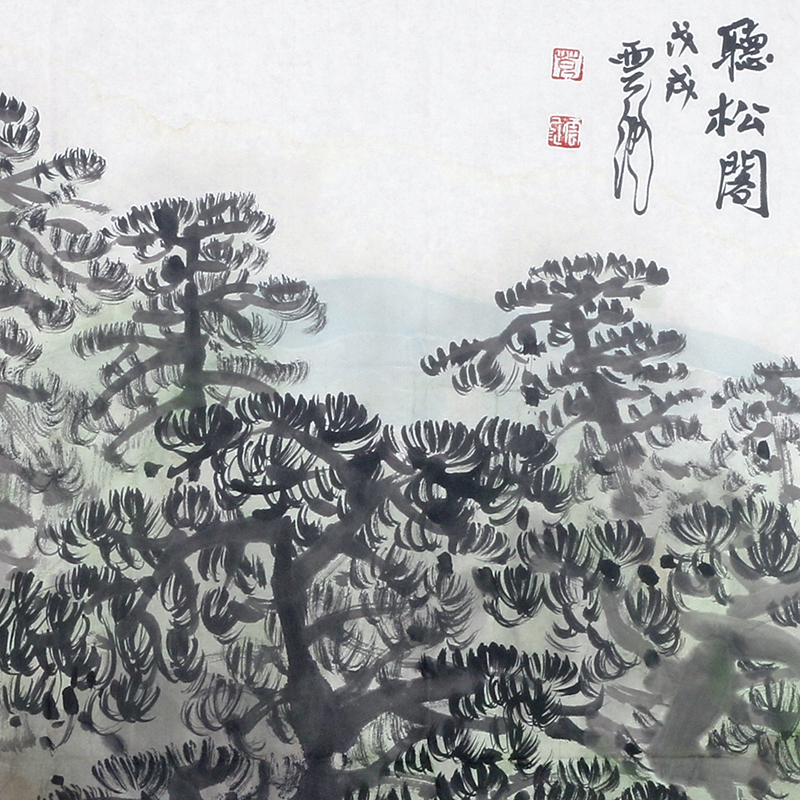 聽松閣
戊戌
雲